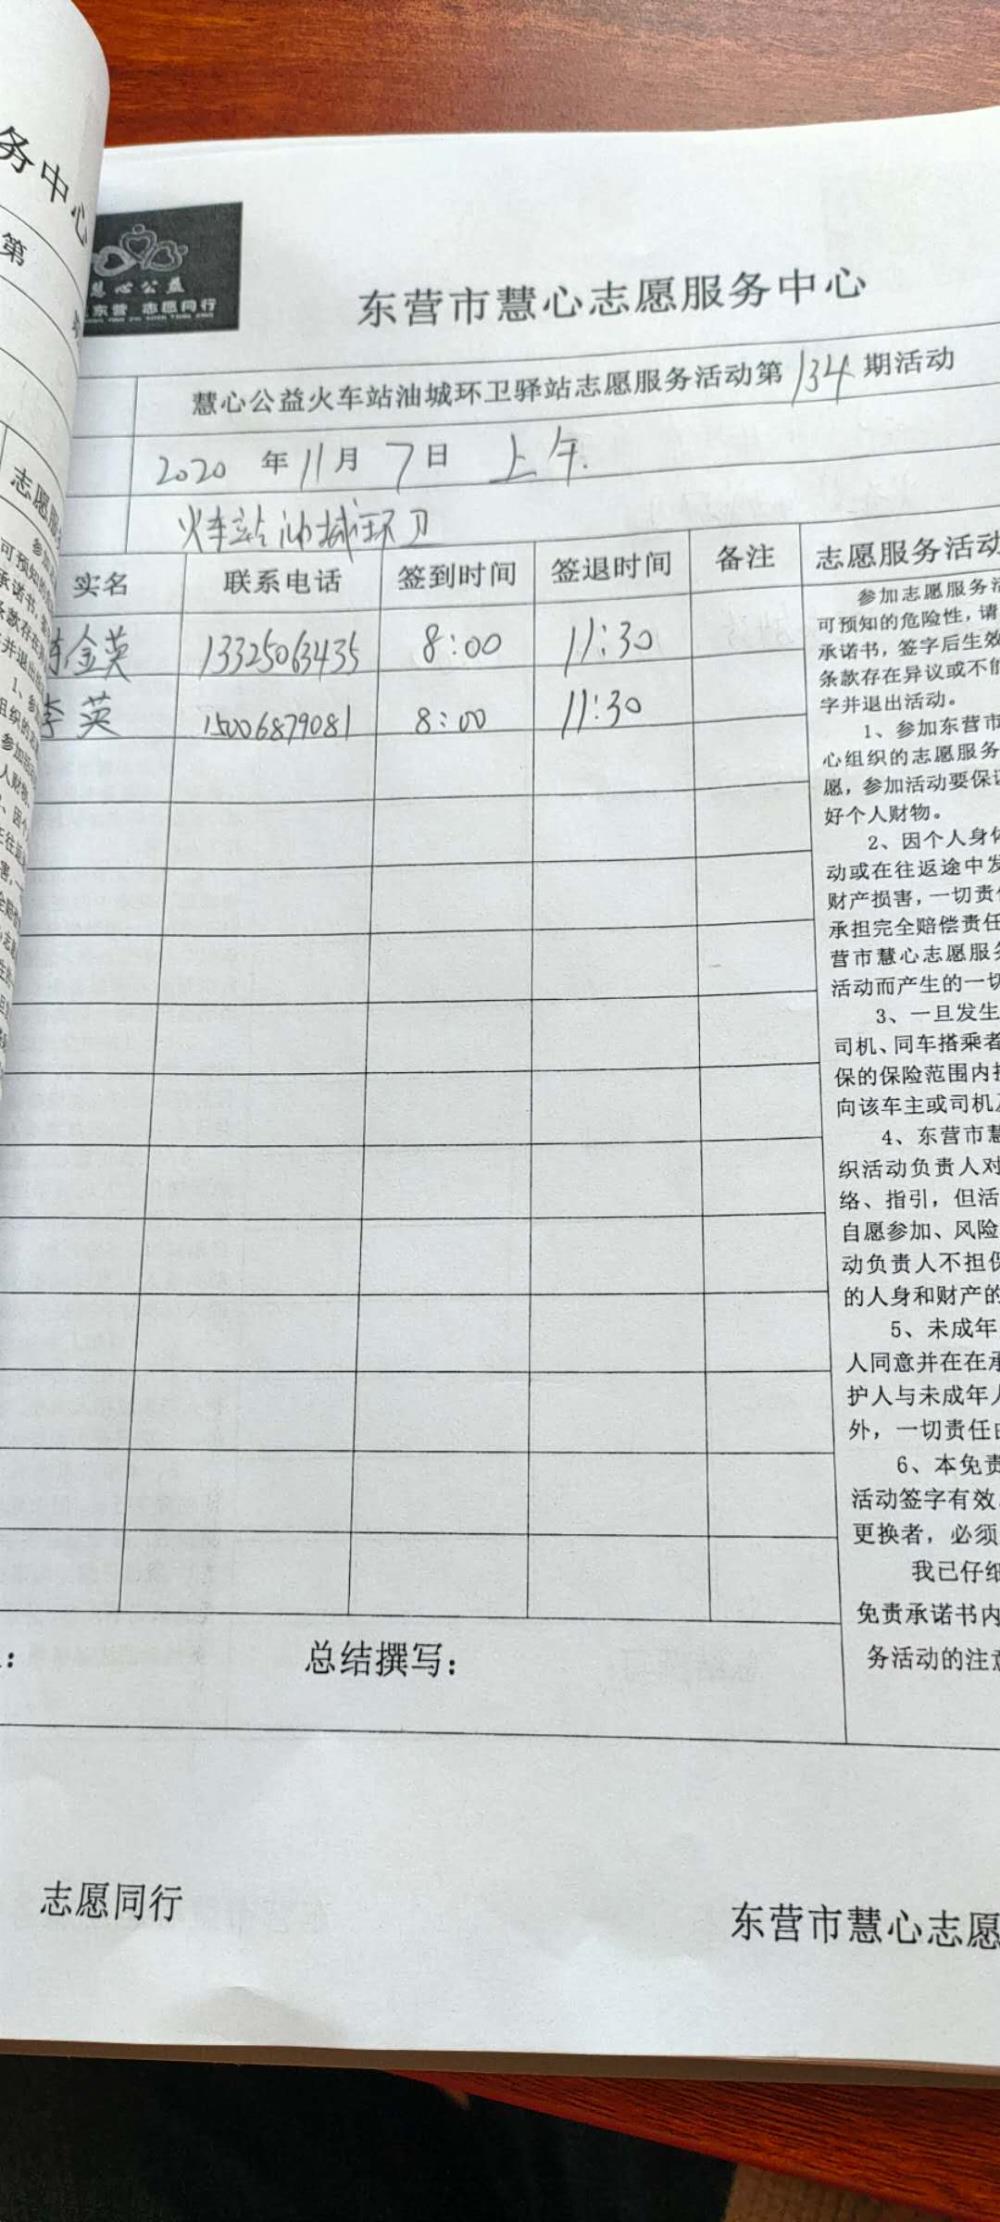 务中心
第
志愿服
慧心公益
东营 志愿同行
东营市慧心志愿服务中心
慧心公益火车站油城环卫驿站志愿服务活动第134期活动
2020年11月7日 上午.
火车站油城环卫
实名 联系电话 签到时间 签退时间 备注
金英 13325063435 8:00 11:30
李英 15006879081 8:00 11:30
总结撰写：
志愿服务活动
参加志愿服务活
可预知的危险性，请
承诺书，签字后生效
条款存在异议或不能
字并退出活动。
1、参加东营市
心组织的志愿服务
愿，参加活动要保证
好个人财物。
2、因个人身体
动或在往返途中发
财产损害，一切责任
承担完全赔偿责任
营市慧心志愿服务
活动而产生的一切
3、一旦发生
司机、同车搭乘者
保的保险范围内
向该车主或司机及
4、东营市慧
织活动负责人对
络、指引，但活
自愿参加、风险
动负责人不担保
的人身和财产的
5、未成年
人同意并在在承
护人与未成年人
外，一切责任由
6、本免责
活动签字有效
更换者，必须
我已仔细
免责承诺书内
务活动的注意
志愿同行
东营市慧心志愿